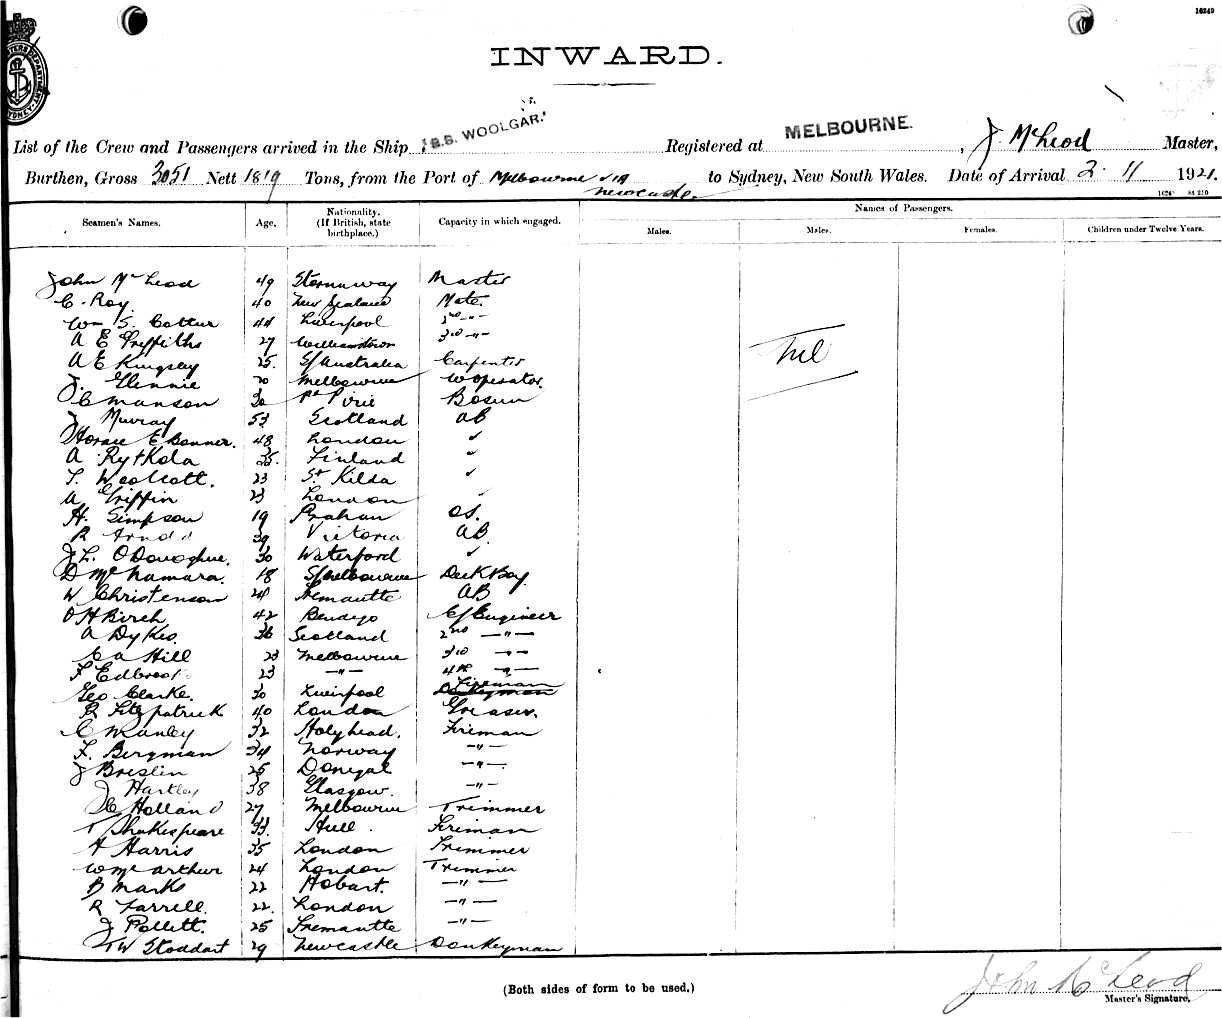 16249
INWARD.
List of the Crew and Passengers arrived in the Ship S.S. WOOLGAR. Registered at MELBOURNE. , J McLeod Master,
Burthen, Gross 3051 Nett 1819 Tons, from the Port of Melbourne via Newcastle to Sydney, New South Wales. Date of Arrival 2. 11 1921.
Names of Passengers.
Seamen's Names. Age. Nationality. (If British, state birthplace.) Capacity in which engaged. Males. Males. Females. Children under Twelve Years.
John McLeod 49 Stornaway Master
C. Roy 40 New Zealand Mate.
Wm S. Cottur 44 Liverpool 2nd -"-
A E Griffiths 27 Williamstown 3rd -"-
Nil
A E Kingsley 25. S/Australia Carpenter
J. Glennie 20 Melbourne W operator.
C Manson 30 Pt Pirie Bosun
J Murray 53 Scotland AB
Horace E Bonner. 48 London "
A Rytkola 35. Finland "
T. Woolcott. 23 St Kilda "
A Griffin 23 London "
H. Simpson 19 Prahan OS.
R Arnold 39 Victoria AB
J L. O'Donoghue. 30 Waterford "
D McNamara. 18 S/Melbourne Deck Boy
W Christenson 24 Fremantle AB
O H Birch 42 Bendigo C/Engineer
A Dykes. 36 Scotland 2nd -"-
C A Hill 23 Melbourne 3rd -"-
F Edbrook 23 -"- 4th -"-
Geo Clarke. 30 Liverpool Fireman Donkeyman
R Fitzpatrick 40 London Greaser.
C Manley 32 Holyhead. Fireman
F. Bergman 34 Norway -"-
J Breslin 25 Donegal -"-
J Hartley 38 Glasgow. -"-
C Holland 27 Melbourne Trimmer
T Shakespeare 33. Hull. Fireman
A Harris 35 London Trimmer
W McArthur 24 London Trimmer
B Marks 22 Hobart. -"-
R Farrell. 22. London -"-
J Pollett. 25 Fremantle -"-
T W Stoddart 29 Newcastle Donkeyman
(Both sides of form to be used.)
John McLeod
Master's Signature.